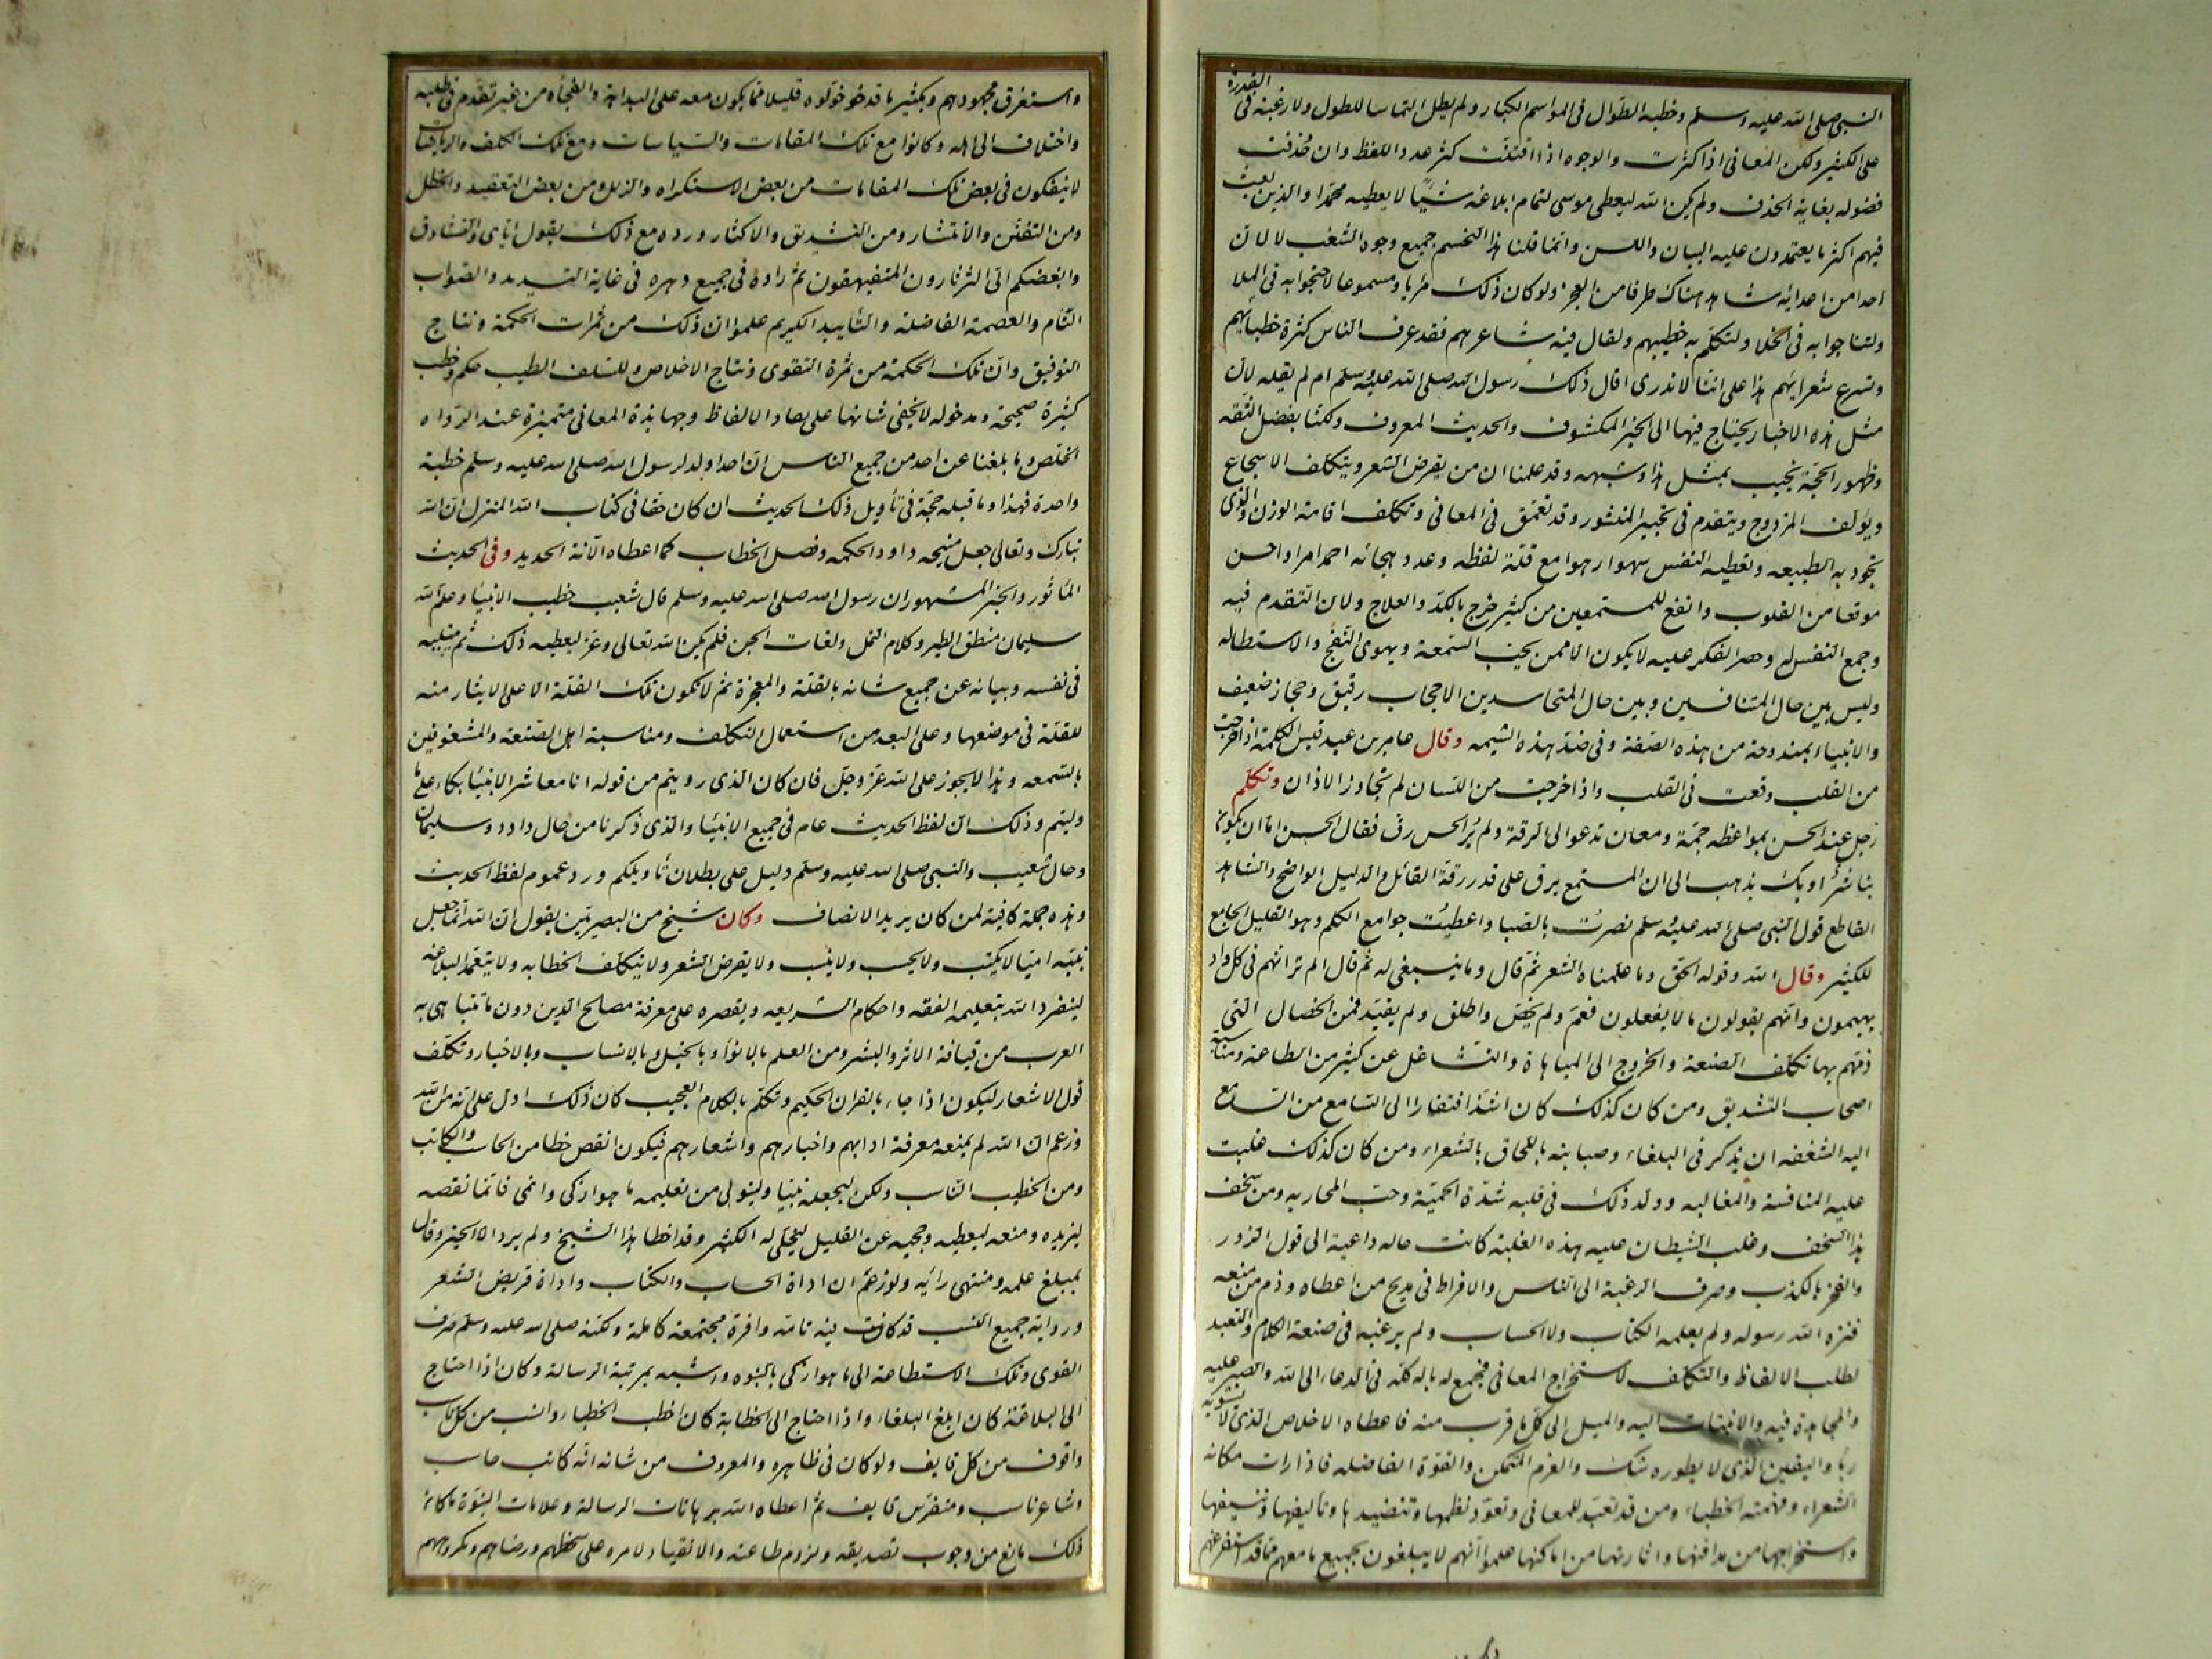 النبى صلى الله عليه وسلم وخطبه الطوال فى المواسم الكبار ولم يطل التماسا للطول ولا رغبة فى القدرة
على الكثير ولكن المعانى اذا كثرت والوجوه اذا افتنت كثر عدد اللفظ وان حذفت
فضوله بغاية الحذف ولم يكن الله ليعطى موسى لتمام ابلاغه شيئا لا يعطيه محمدا والذين بعث
فيهم اكثر ما يعتمدون عليه البيان واللسن وانما قلنا هذا لنحسم جميع وجوه الشغب لا لان
احدا من اعدائه شاهد هناك طرفا من العجز ولو كان ذلك مرئيا ومسموعا لاحتجوا به فى الملا
ولتناجوا به فى الخلا ولتكلم به خطيبهم ولقال فيه شاعرهم فقد عرف الناس كثرة خطبائهم
وتسرع شعرائهم هذا على اننا لا ندرى اقال ذلك رسول الله صلى الله عليه وسلم ام لم يقله لان
مثل هذه الاخبار يحتاج فيها الى الخبر المكشوف والحديث المعروف ولكنا بفضل الثقه
وظهور الحجة نجيب بمثل هذا وشبهه وقد علمنا ان من يقرض الشعر ويتكلف الاسجاع
ويؤلف المزدوج ويتقدم فى تحبير المنثور وقد تعمق فى المعانى وتكلف اقامة الوزن والذى
تجود به الطبيعه وتعطيه النفس سهوا رهوا مع قلة لفظه وعدد هجائه احمد امرا واحسن
موقعا من القلوب وانفع للمستمعين من كثير خرج بالكد والعلاج ولان التقدم فيه
وجمع النفس له وحصر الفكر عليه لا يكون الا ممن يحب السمعة ويهوى النفج والاستطاله
وليس بين حال المتنافسين وبين حال المتحاسدين الا حجاب رقيق وحجاز ضعيف
والانبياء بمندوحة من هذه الصفة وفى ضد هذه الشيمه وقال عامر بن عبد قيس الكلمة اذا خرجت
من القلب وقعت فى القلب واذا خرجت من اللسان لم تجاوز الاذان وتكلم
رجل عند الحسن بمواعظ جمة ومعان تدعو الى الرقة ولم ير الحسن رق فقال الحسن اما ان يكون
بنا شر او بك يذهب الى ان المستمع يرق على قدر رقة القائل والدليل الواضح والشاهد
القاطع قول النبى صلى الله عليه وسلم نصرت بالصبا واعطيت جوامع الكلم وهو القليل الجامع
للكثير وقال الله وقوله الحق وما علمناه الشعر ثم قال وما ينبغى له ثم قال الم تر انهم فى كل واد
يهيمون وانهم يقولون ما لا يفعلون فعم ولم يخص واطلق ولم يقيد فمن الخصال التى
ذمهم بها تكلف الصنعة والخروج الى المباهاة والتشاغل عن كثير من الطاعة ومناسبة
اصحاب التشديق ومن كان كذلك كان اشد افتقارا الى السامع من السامع
اليه الشغفه ان يذكر فى البلغاء وصبابته باللحاق بالشعراء ومن كان كذلك غلبت
عليه المنافسة والمغالبه وولد ذلك فى قلبه شدة الحمية وحب المحاربه ومن سخف
هذا السخف وغلب الشيطان عليه هذه الغلبة كانت حاله داعية الى قول الزور
والفخر بالكذب وصرف الرغبة الى الناس والافراط فى مديح من اعطاه وذم من منعه
فنزه الله رسوله ولم يعلمه الكتاب ولا الحساب ولم يرغبه فى صنعة الكلام والتعبد
لطلب الالفاظ والتكلف لاستخراج المعانى فجمع له باله كله فى الدعاء الى الله والصبر عليه
والمجاهدة فيه والانبتات اليه والميل الى كل ما قرب منه فاعطاه الاخلاص الذى لا يشوبه
رياء واليقين الذى لا يطوره شك والعزم المتمكن والقوة الفاضله فاذا رات مكانه
الشعراء وفهمته الخطباء ومن قد تعبد للمعانى وتعود نظمها وتنضيدها وتاليفها وتنسيقها
واستخراجها من مدافنها واثارتها من اماكنها علموا انهم لا يبلغون بجميع ما معهم مما قد استفرغهم
واستغرق مجهودهم وبكثير ما قد خولوه قليلا مما يكون معه على البداهة والفجاه من غير تقدم فى طلبه
واختلاف الى اهله وكانوا مع تلك المقامات والسياسات ومع تلك الكلف والرياضات
لا ينفكون فى بعض تلك المقامات من بعض الاستكراه والزلل ومن بعض التعقيد والخطل
ومن التفنن والانتشار ومن التشديق والاكثار ورده مع ذلك يقول اياى والتشادق
وابغضكم الى الثرثارون المتفيهقون ثم راوه فى جميع دهره فى غاية التسديد والصواب
التام والعصمة الفاضلة والتاييد الكريم علموا ان ذلك من ثمرات الحكمة ونتاج
التوفيق وان تلك الحكمة من ثمرة التقوى ونتاج الاخلاص وللسلف الطيب حكم وخطب
كثيرة صحيحة ومدخوله لا يخفى شانها على نقاد الالفاظ وجهابذة المعانى متميزة عند الرواه
الخلص وما بلغنا عن احد من جميع الناس ان احدا ولد لرسول الله صلى الله عليه وسلم خطبة
واحدة فهذا وما قبله حجة فى تأويل ذلك الحديث ان كان حقا فى كتاب الله المنزل ان الله
تبارك وتعالى جعل منيحه داود الحكمه وفصل الخطاب كما اعطاه الانة الحديد وفى الحديث
الماثور والخبر المشهور ان رسول الله صلى الله عليه وسلم قال شعيب خطيب الانبيا وعلم الله
سليمان منطق الطير وكلام النمل ولغات الجن فلم يكن الله تعالى وعز ليعطيه ذلك ثم يبتليه
فى نفسه وبيانه عن جميع شانه بالقلة والمعجزة ثم لا تكون تلك القلة الا على الايثار منه
للقلة فى موضعها وعلى البعد من استعمال التكلف ومناسبة اهل الصنعة والمشغوفين
بالسمعه وهذا لا يجوز على الله عز وجل فان كان الذى رويتم من قوله انا معاشر الانبيا بكاء على ما
وليتم وذلك ان لفظ الحديث عام فى جميع الانبيا والذى ذكرنا من حال داود وسليمان
وحال شعيب والنبى صلى الله عليه وسلم دليل على بطلان تاويلكم ورد عموم لفظ الحديث
وهذه جملة كافية لمن كان يريد الانصاف وكان شيخ من البصريين يقول ان الله انما جعل
نبيه اميا لا يكتب ولا يحسب ولا ينسب ولا يقرض الشعر ولا يتكلف الخطابه ولا يتعمد البلاغه
لينفرد الله بتعليمه الفقه واحكام الشريعه ويقصره على معرفة مصالح الدين دون ما تتباهى به
العرب من قيافة الاثر والبشر ومن العلم بالانوا وبالخيل وبالانساب وبالاخبار وتكلف
قول الاشعار ليكون اذا جاء بالقران الحكيم وتكلم بالكلام العجيب كان ذلك ادل على انه من الله
وزعم ان الله لم يمنعه معرفة ادابهم واخبارهم واشعارهم فيكون انقص حظا من الحاسب والكاتب
ومن الخطيب الناسب ولكن ليجعله نبيا وليتولى من تعليمه ما هو ازكى وانمى فانما نقصه
ليزيده ومنعه ليعطيه وحجبه عن القليل ليجلى له الكثير وقد اخطا هذا الشيخ ولم يرد الا الخير وقال
بمبلغ علمه ومنتهى رايه ولو زعم ان اداة الحساب والكتاب واداة قريض الشعر
ورواية جميع النسب قد كانت فيه تامة وافرة مجتمعة كاملة ولكنه صلى الله عليه وسلم صرف
القوى وتلك الاستطاعة الى ما هو ازكى بالنبوه واشبه بمرتبة الرسالة وكان اذا احتاج
الى البلاغة كان ابلغ البلغاء واذا احتاج الى الخطابة كان اخطب الخطباء وانسب من كل ناسب
واقوف من كل قايف ولو كان فى ظاهره والمعروف من شانه انه كاتب حاسب
وشاعر ناسب ومتفرس قايف ثم اعطاه الله برهانات الرسالة وعلامات النبوة ما كان
ذلك مانع من وجوب تصديقه ولزوم طاعته والانقياد لامره على سخطهم ورضاهم ومكروههم